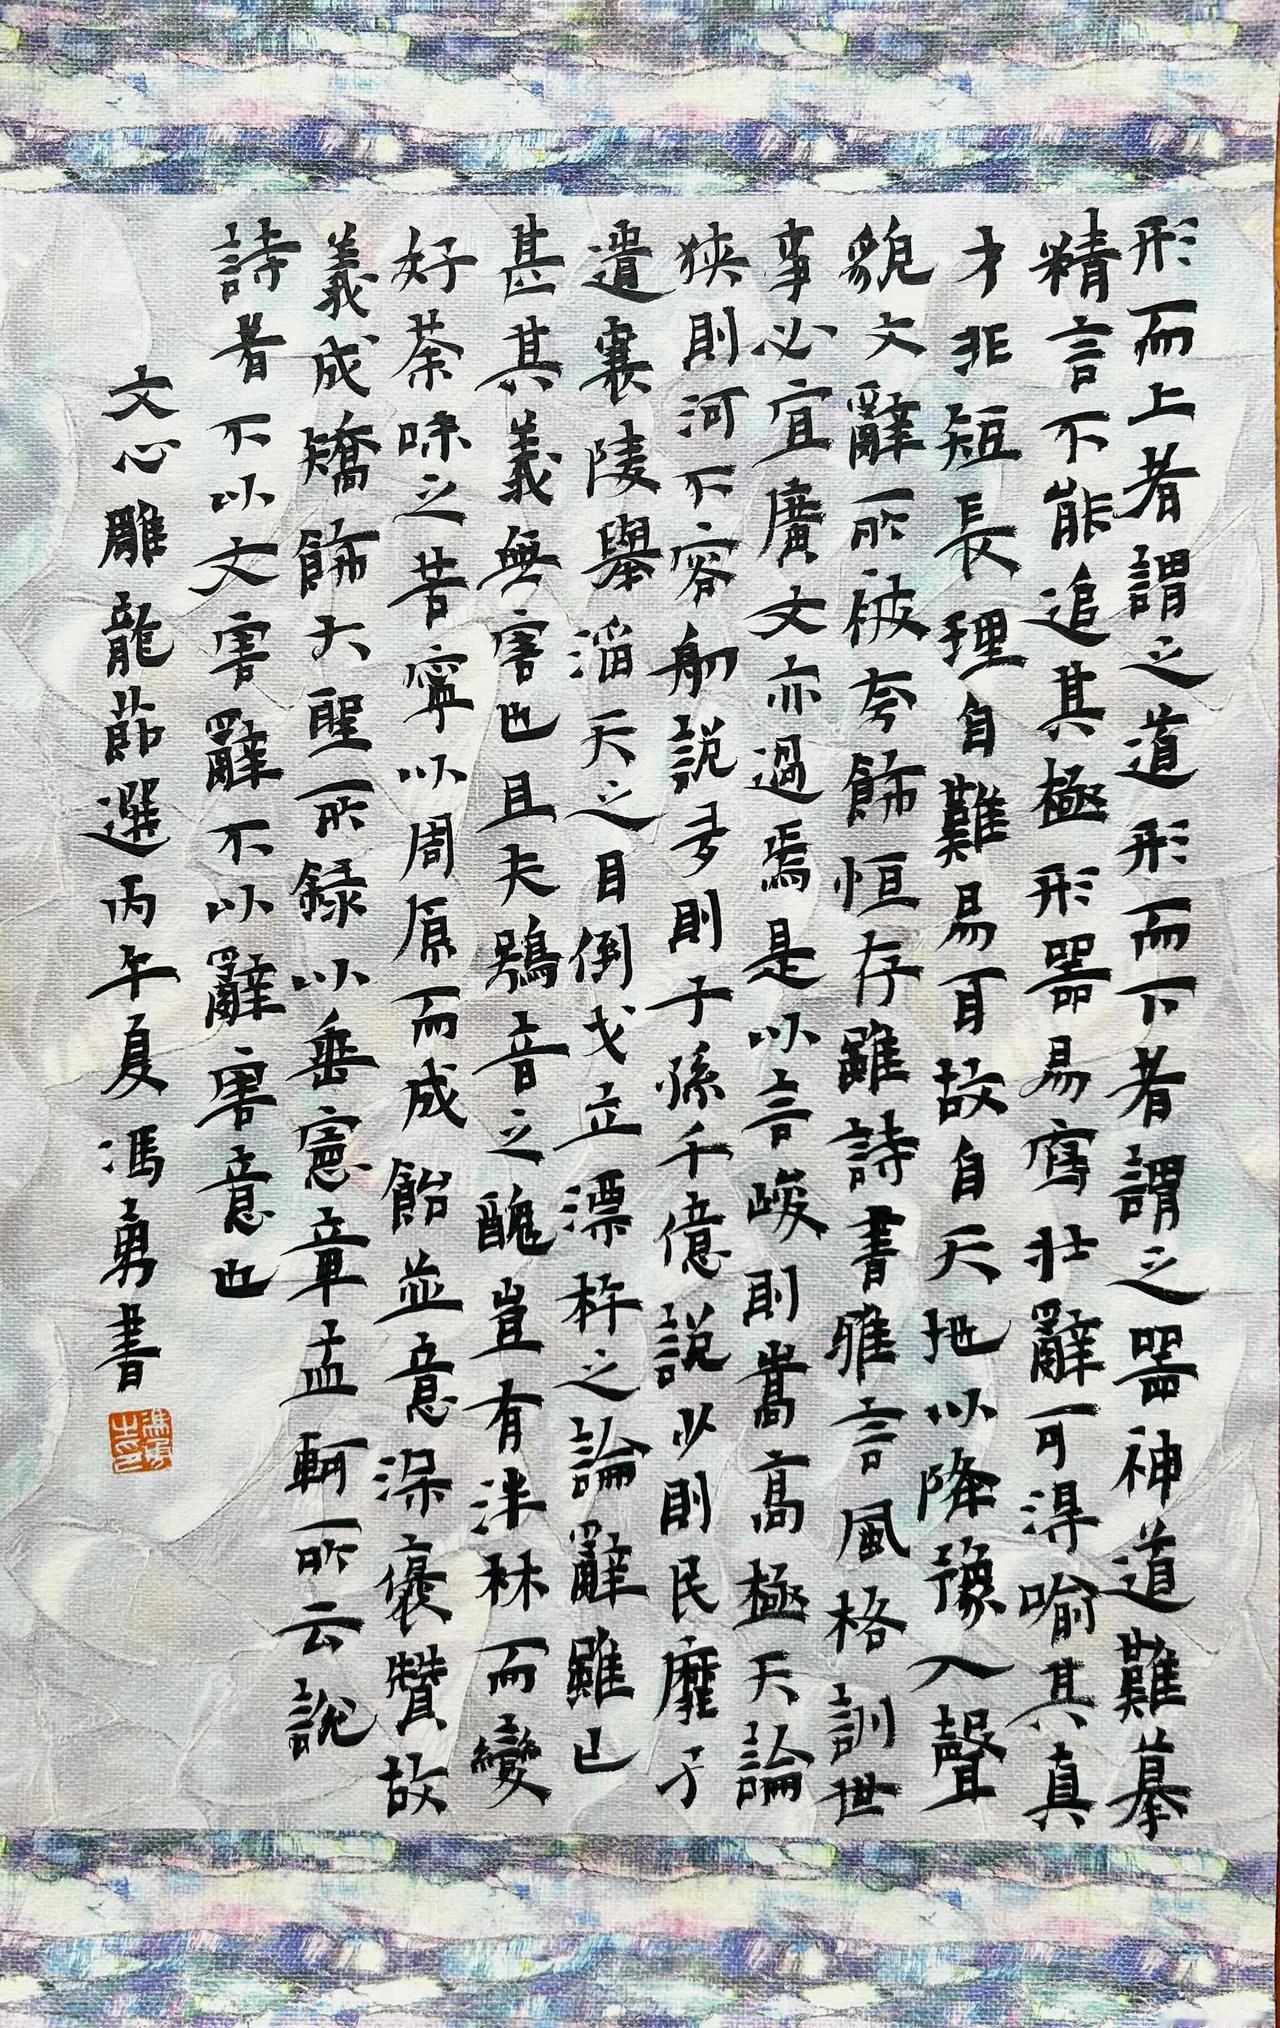 形而上者謂之道形而下者謂之器神道難摹
精言不能追其極形器易寫壯辭可得喻其真
才非短長理自難易耳故自天地以降豫入聲
貌文辭所被夸飾恒存雖詩書雅言風格訓世
事必宜廣文亦過焉是以言峻則嵩高極天論
狹則河不容舠說多則子孫千億說少則民靡孑
遺襄陵舉滔天之目倒戈立漂杵之論辭雖已
甚其義無害也且夫鴞音之醜豈有泮林而變
好荼味之苦寧以周原而成飴並意深褒贊故
義成矯飾大聖所録以垂憲章孟軻所云說
詩者不以文害辭不以辭害意也
文心雕龍節選丙午夏馮勇書
馮勇之印